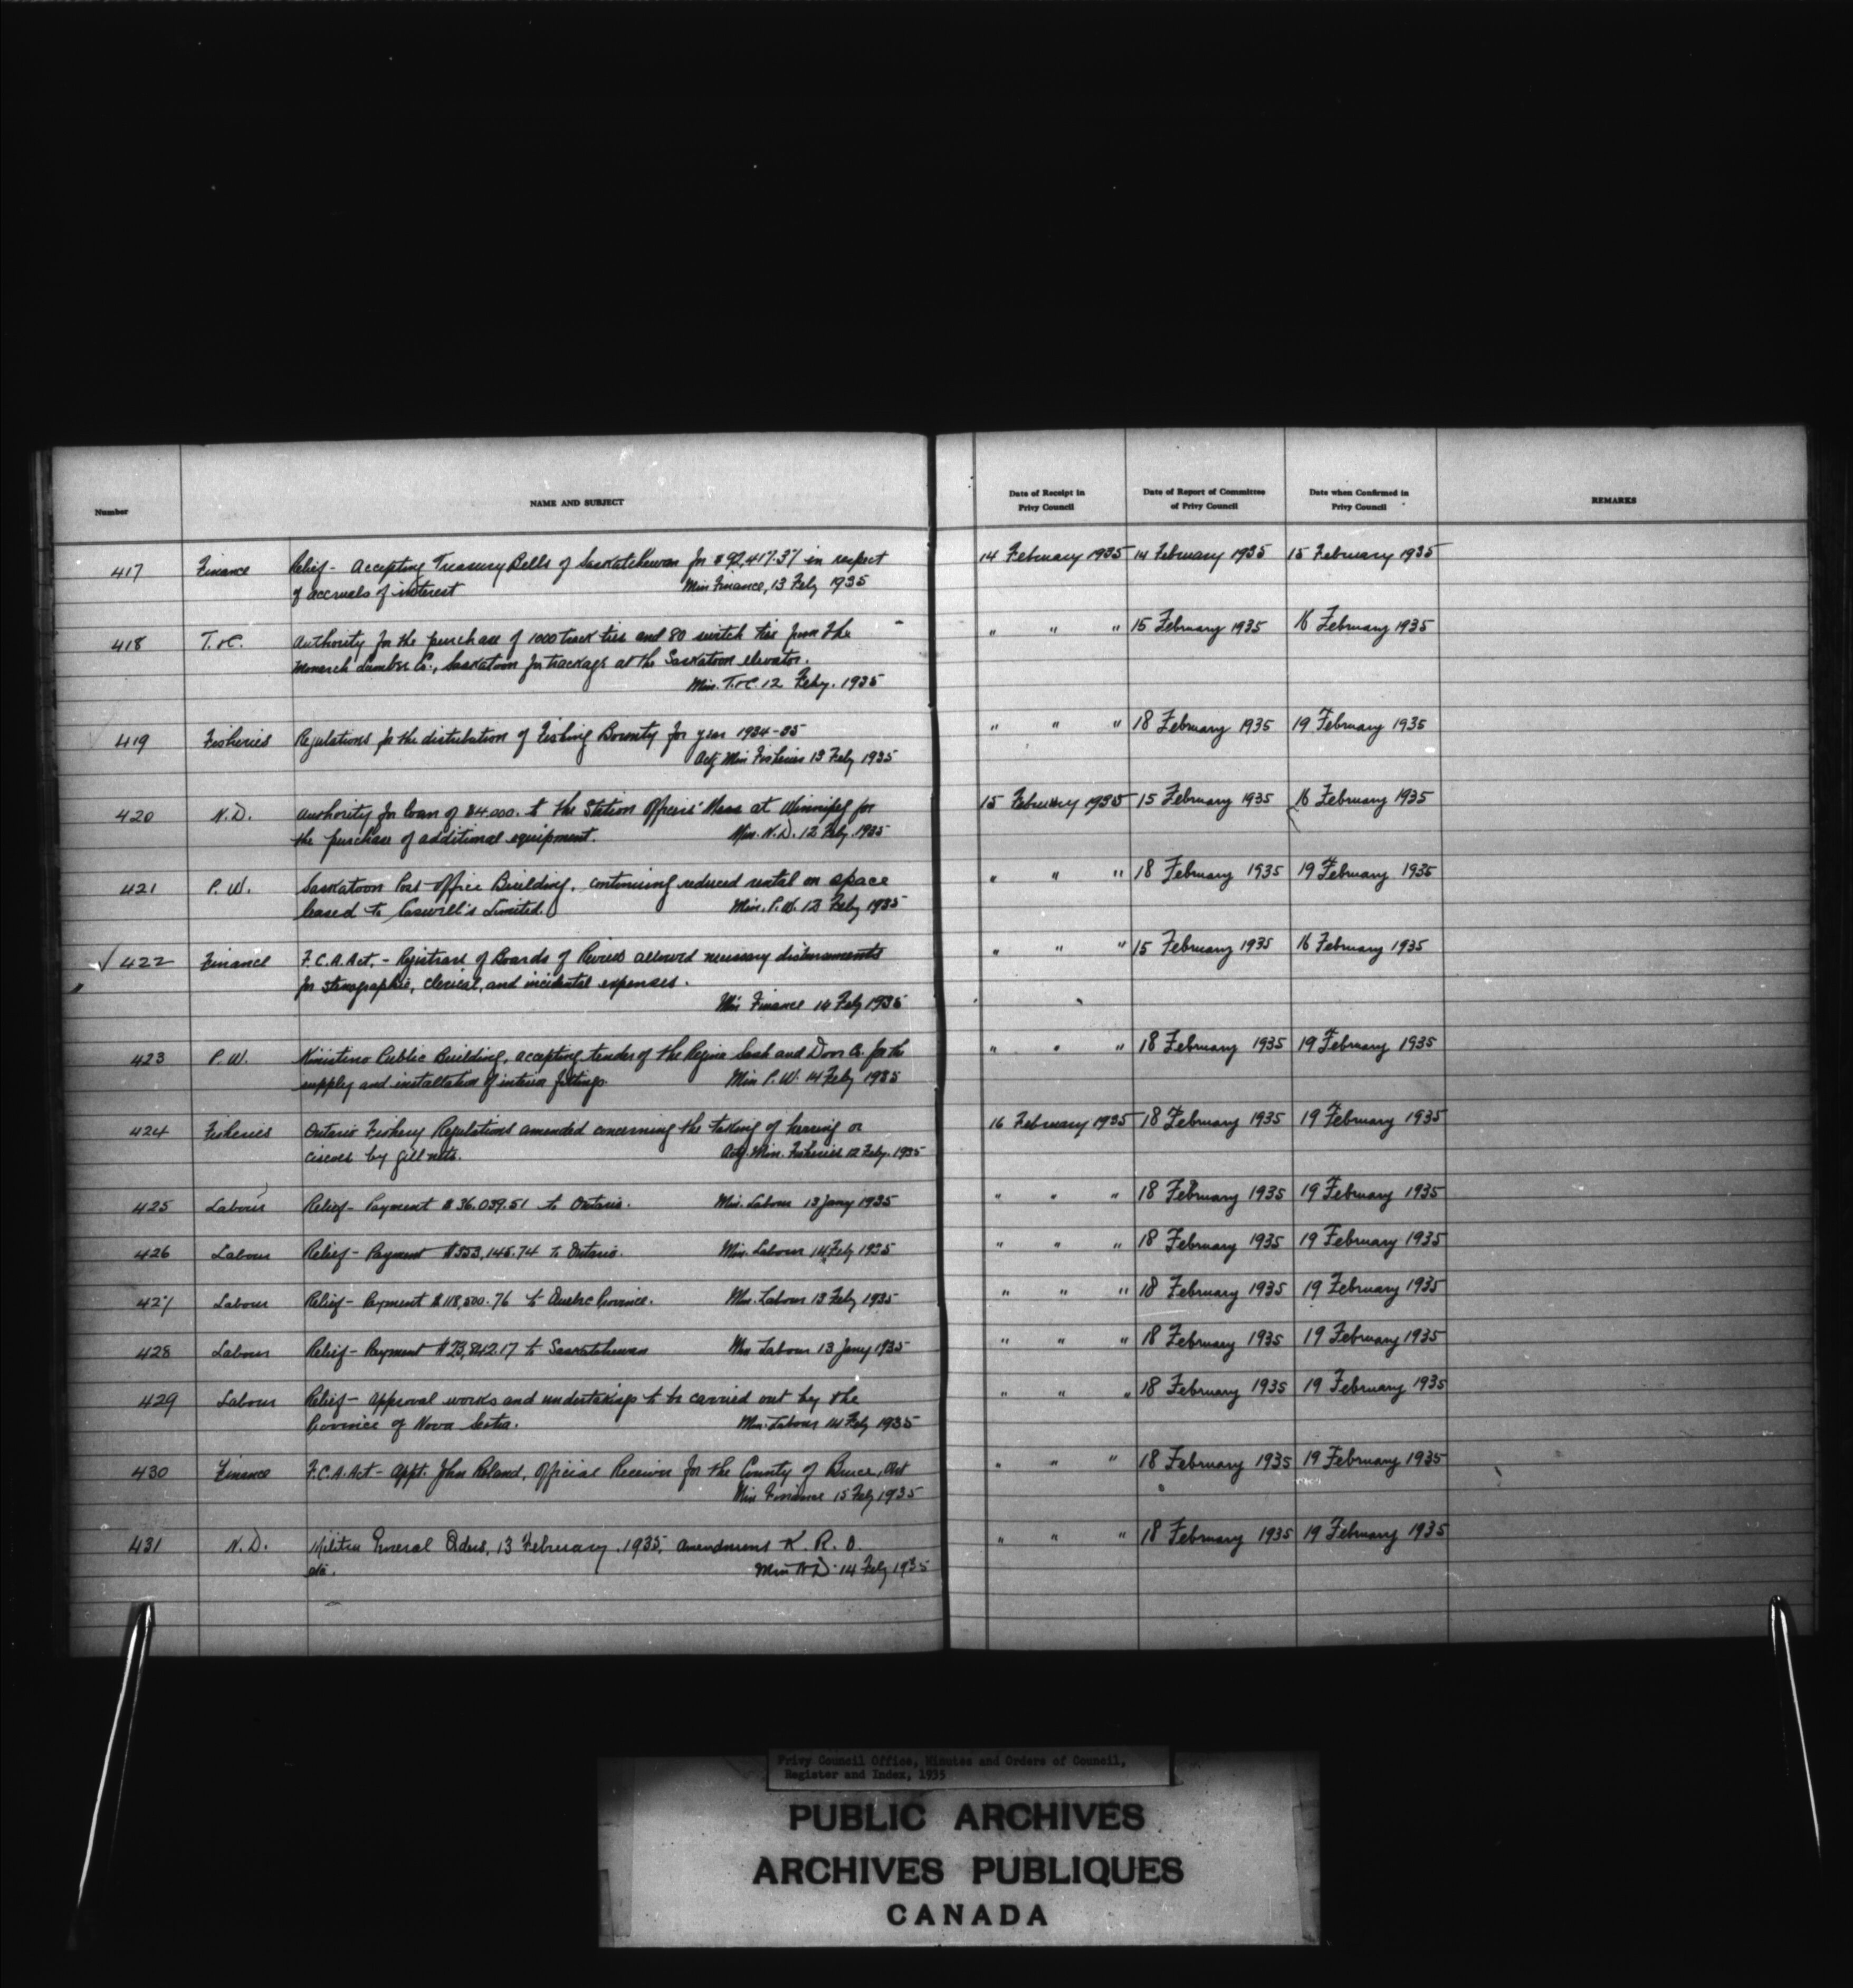 Number
NAME AND SUBJECT
Date of Receipt in
Privy Council
Date of Report of Committee
of Privy Council
Date when Confirmed in
Privy Council
REMARKS
417 Finance Relief - Accepting Treasury Bills of Saskatchewan for $92,417.37 in respect 14 February 1935 14 February 1935 15 February 1935
of accruals of interest Min Finance, 13 Feby 1935
418 T.&C. Authority for the purchase of 1000 track ties and 80 switch ties from the " " " 15 February 1935 16 February 1935
Monarch Lumber Co., Saskatoon for trackage at the Saskatoon elevator.
Min. T.&C. 12 Feby. 1935
419 Fisheries Regulations for the distribution of Fishing Bounty for year 1934-35 " " " 18 February 1935 19 February 1935
Actg Min Fisheries 13 Feby 1935
420 N.D. Authority for loan of $4.000. to the Station Officers' Mess at Winnipeg for 15 February 1935 15 February 1935 16 February 1935
the purchase of additional equipment. Min. N.D. 12 Feby 1935
421 P.W. Saskatoon Post Office Building, continuing reduced rental on space " " " 18 February 1935 19 February 1935
leased to Caswell's Limited. Min. P.W. 13 Feby 1935
√ 422 Finance F.C.A. Act. - Registrars of Boards of Review allowed necessary disbursements " " " 15 February 1935 16 February 1935
for stenographic, clerical, and incidental expenses.
Min Finance 14 Feby 1935
423 P.W. Kinistino Public Building, accepting tender of the Regina Sash and Door Co. for the " " " 18 February 1935 19 February 1935
supply and installation of interior fittings. Min P.W. 14 Feby 1935
424 Fisheries Ontario Fishery Regulations amended concerning the taking of herring or 16 February 1935 18 February 1935 19 February 1935
ciscoes by gill nets. Actg. Min. Fisheries 12 Feby. 1935
425 Labour Relief - Payment $36.039.51 to Ontario. Min. Labour 13 Jany 1935 " " " 18 February 1935 19 February 1935
426 Labour Relief - Payment to Ontario. Min. Labour 14 Feby 1935 " " " 18 February 1935 19 February 1935
427 Labour Relief - Payment $118,500.76 to Quebec Province. Min. Labour 13 Feby 1935 " " " 18 February 1935 19 February 1935
428 Labour Relief - Payment $23,842.17 to Saskatchewan Min Labour 13 Jany 1935 " " " 18 February 1935 19 February 1935
429 Labour Relief - Approval works and undertakings to be carried out by the " " " 18 February 1935 19 February 1935
Province of Nova Scotia. Min. Labour 14 Feby 1935
430 Finance F.C.A. Act - Appt. John Roland, Official Receiver for the County of Bruce, Ont " " " 18 February 1935 19 February 1935
Min Finance 15 Feby 1935
431 N.D. Militia General Orders, 13 February, 1935, amendment K.R.O. " " " 18 February 1935 19 February 1935
etc. Min N D 14 Feby 1935
Privy Council Office, Minutes and Orders of Council,
Register and Index, 1935
PUBLIC ARCHIVES
ARCHIVES PUBLIQUES
CANADA